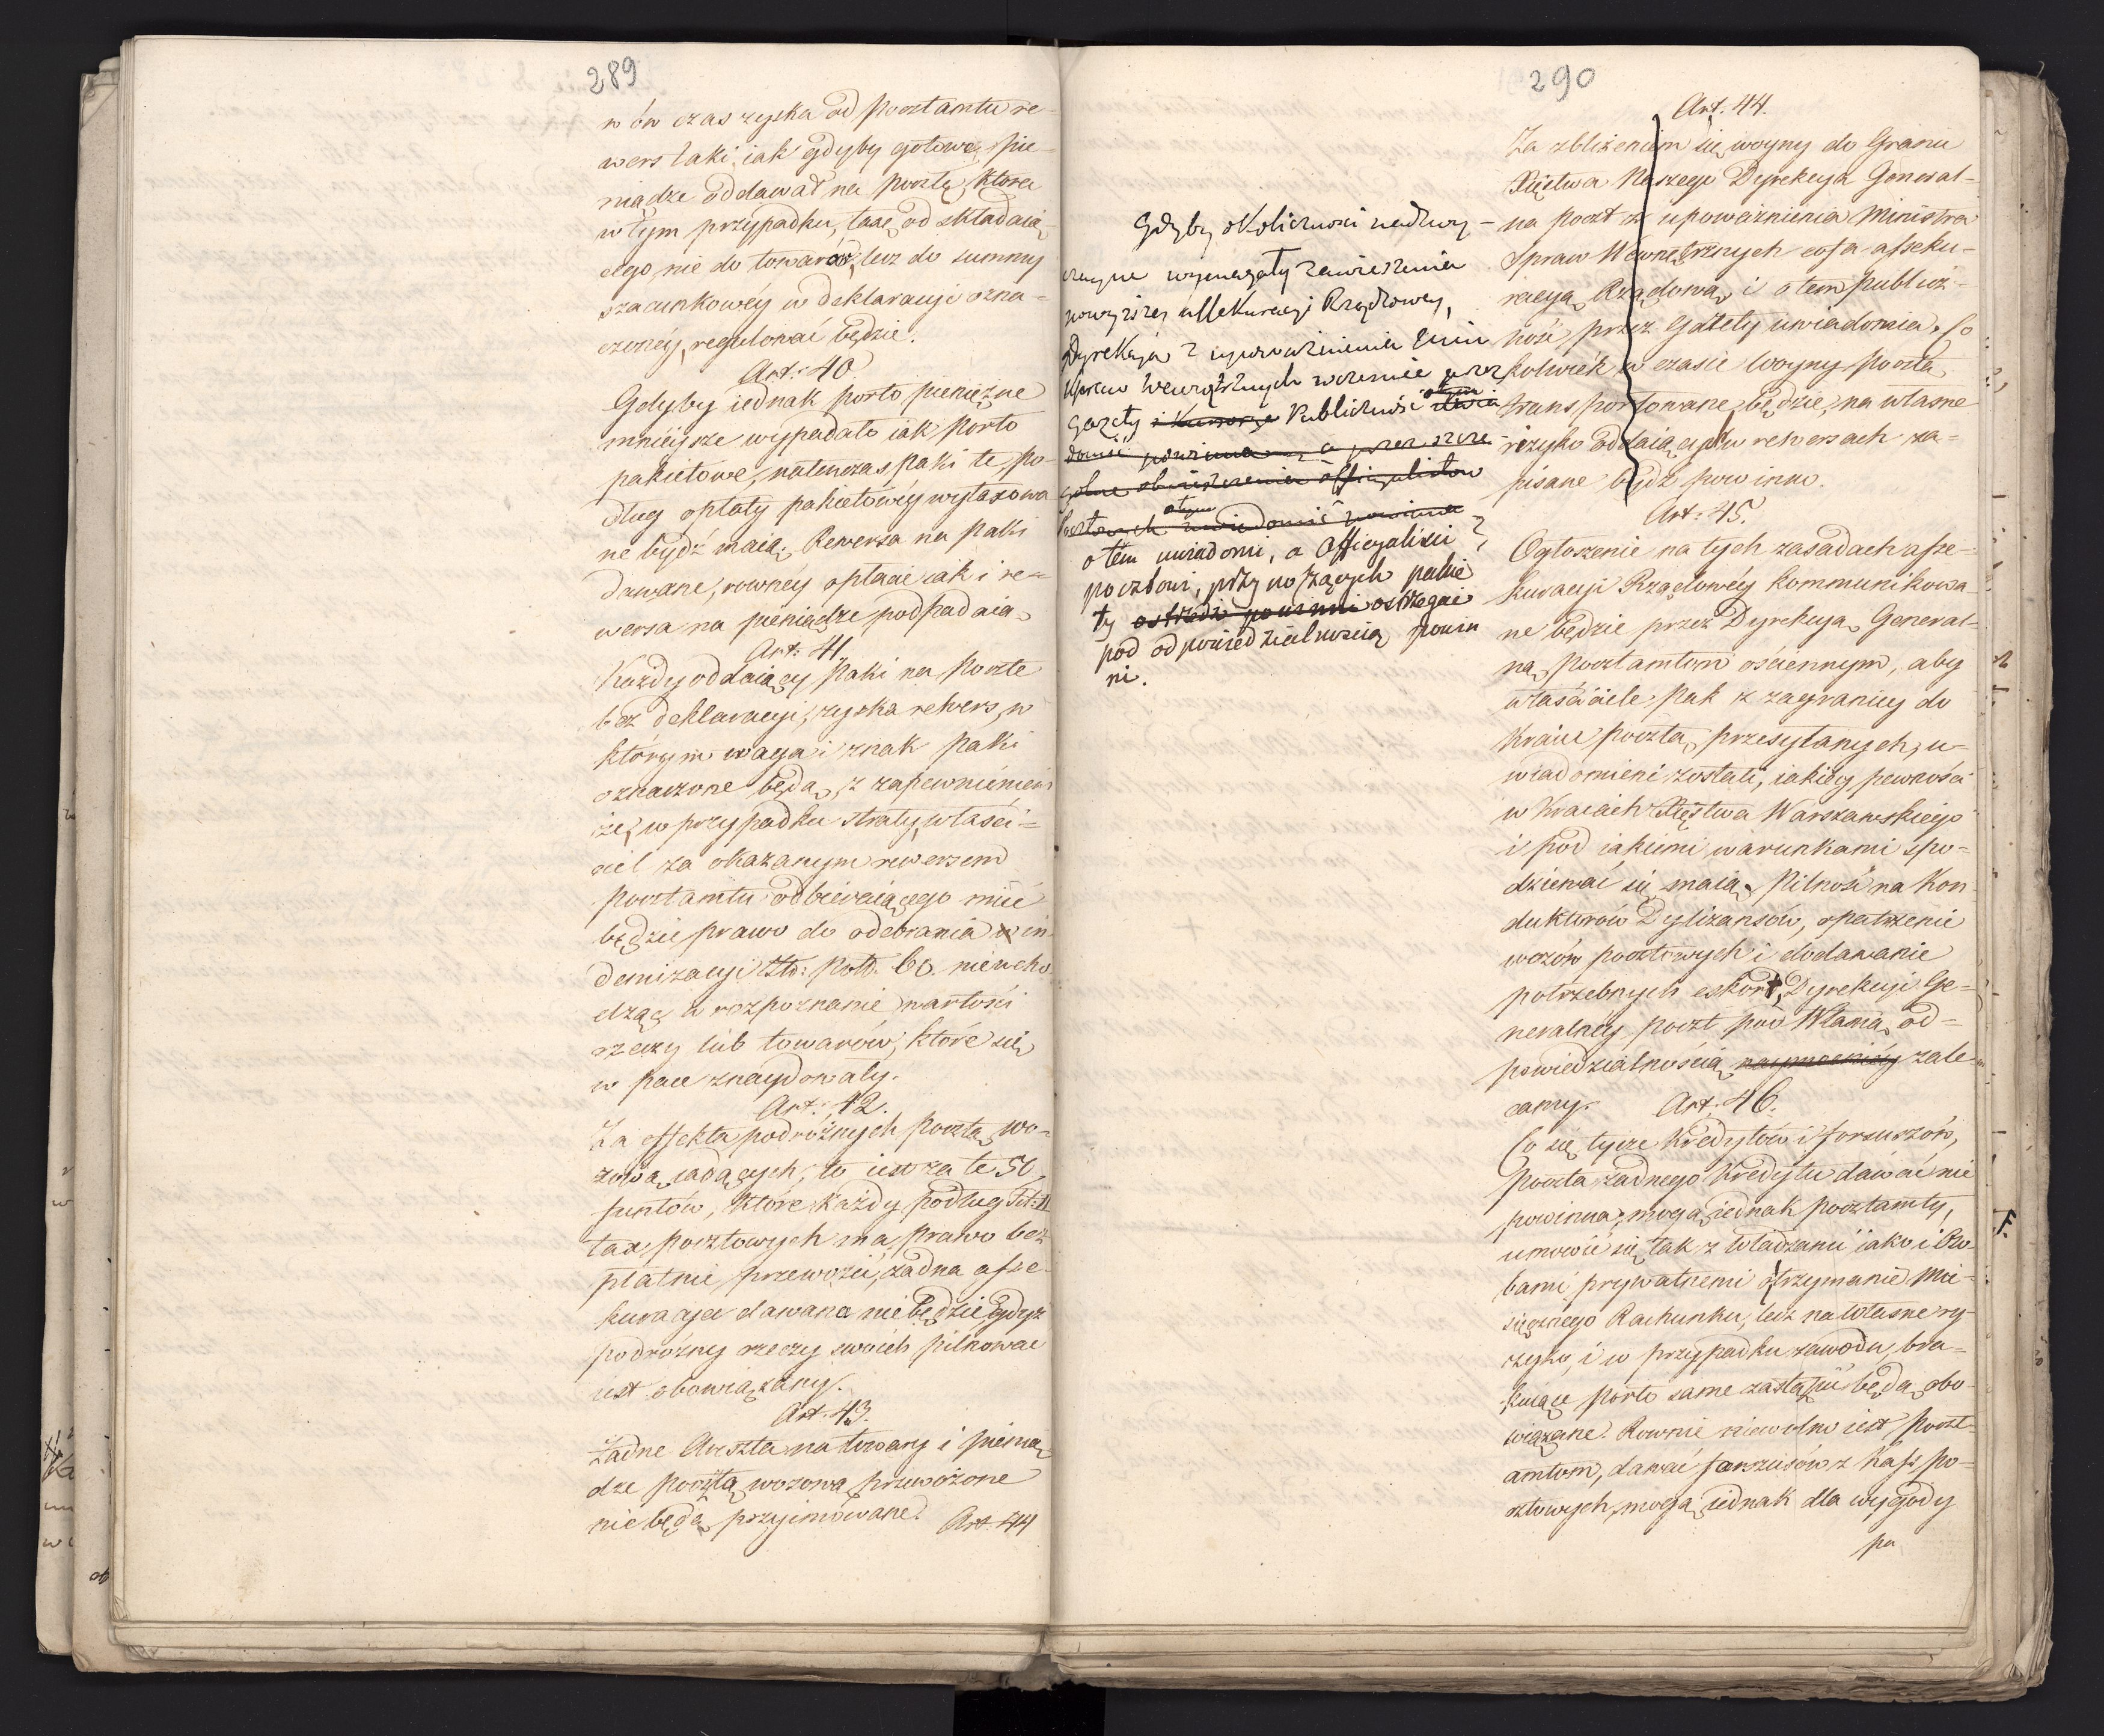 289
w ów czas zyska od pocztamtu re-
wers taki, iak gdyby gotowe pie-
niądze oddawał na pocztę, która
w tym przypadku, taxę od składaią-
cego, nie do towarów, lecz do summy
szacunkowéy w deklaracyi ozna-
czonéy, regulować będzie.
Art: 40
Gdyby iednak porto pieniężne
mniéysze wypadało iak porto
pakietowe, natenczas paki te, po-
dług opłaty pakietowéy wytaxowa
ne bydź maią. Rewersa na paki
dawane, rownéy opłacie iak i re-
wersa na pieniądze podpadaią.
Art: 41.
Każdy oddaiący paki na pocztę
bez deklaracyi, zyska rewers, w
którym waga i znak paki
oznaczone będą, z zapewnieniem
iż, w przypadku straty, właści-
ciel za okazanym rewersem
pocztamtu odbieraiącego mieć
będzie prawo do odebrania w in
demnizacyi Złł: pols. 60. niewcho
dząc w rozpoznanie wartości
rzeczy lub towarów, które się
w pace znaydowały.
Art: 42.
Za effekta podróżnych pocztą wo-
zową iadących, to iest za te 50
funtów, które każdy podług Tit: II
tax pocztowych ma prawo bez
płatnie przewozić, żadna asse-
kuracya dawana nie będzie, gdyż
podróżny rzeczy swóich pilnować
iest obowiązany.
Art: 43.
Żadne Areszta na towary i pienią
dze pocztą wozową przewożone
nie będą przyimowane.
Art. 44
290
Art: 44.
Za zbliżeniem się woyny do Granic
Xięstwa Naszego Dyrekcya General-
na poczt z upoważnienia Ministra
Spraw Wewnętrznych cofa asseku-
racyą Rządową, i o tem publicz-
ność przez Gazety uwiadomia. Co
kolwiek w czasie woyny pocztą
transportowane będzie, na własne
ryzyko oddaiących w rewersach za-
pisane bydź powinno.
Gdyby okoliczności nadzwy-
czayne wymagały zawieszenia
powyższey assekuracyi Rządowey,
Dyrekcya z upoważnienia
Spraw Wewnętrznych wcześnie przez
Gazety Publiczność
powinna a przez szcze
gólne obwieszczenia officyalistow
o tym
uwiadomić powinna
o tem uwiadomi, a Officyaliści
pocztowi, przynoszących pakie
ty ostrzedz powinni ostrzegać
pod odpowiedzialnością powin
ni.
Art: 45.
Ogłoszenie na tych zasadach asse-
kuracyi Rządowéy kommunikowa-
ne będzie przez Dyrekcyą General-
ną pocztamtom ościennym, aby
właściciele pak z zagranicy do
Kraiu pocztą przesyłanych, u-
wiadomieni zostali, iakiéy pewności
w Kraiach Xięstwa Warszawskiego
i pod iakiemi warunkami spo-
dziewać się maią. Pilność na Kon
duktorów Dyliżansów, opatrzenie
wozów pocztowych i dodawanie
potrzebnych eskort, Dyrekcyi Ge-
neralnéy poczt pod Własną od-
powiedzialnością naymocniéy zale
camy.
Art: 46.
Co się tycze Kredytów i forszusów,
Poczta żadnego Kredytu dawać nie
powinna, mogą iednak pocztamty,
umówić się tak z Władzami iako i Oso
bami prywatnemi o trzymanie Mie-
sięcznego Rachunku, lecz na Własne ry-
zyko, i w przypadku zawodu, bra-
kuiące porto same zastąpić będą obo
wiązane. Rownie niewolno iest Poczt-
amtom, dawać forszusów z Kass po-
cztowych, mogą iednak dla wygody
pu